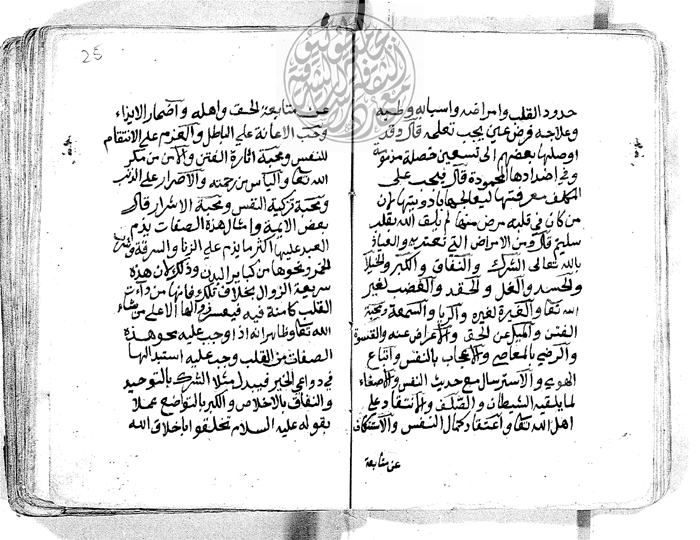 حدود القلب وامراضه واسبابه وطبه
وعلاجه فرض عين يجب تعلمه قال وقد
اوصلها بعضهم الى تسعين خصلة مذمومة
وفي اضدادها المحمودة قال فيجب على
المكلف معرفتها ليعالجها بادويتها لان
من كان في قلبه مرض منها لم يلق الله بقلب
سليم قال ومن الامراض التي تعتريه والعياذ
بالله تعالى الشرك والنفاق والكبر والخيلا
والحسد والغل والحقد والغضب لغير
الله تعا والغيرة لغيره والريا والسمعة ومحبة
الفتن والميل عن الحق والاعراض عنه والقسوة
والرضي بالمعاصي والاعجاب بالنفس واتباع
الهوي والاسترسال مع حديث النفس والاصغاء
لما يلقيه الشيطان والتملق والانتقاد على
اهل الله تعا واعتقاد كمال النفس والاستنكاف
عن متابعة
25
عن متابعة الحق واهله واضمار الايذاء
وحب الاعانة علي الباطل والعزم على الانتقام
للنفس ومحبة اثارة الفتن والامن من مكر
الله تعا والياس من رحمته والاصرار على الذنب
ومحبة تزكية النفس ومحبة الاشرار قال
بعض الايمة وامثال هذه الصفات يذم
العبد عليها اكثر ما يذم علي الزنا والسرقة وشرب
الخمر ونحوها من كباير البدن وذلك لان هذه
سريعة الزوال بخلاف تلك فانها من دآت
القلب كامنة فيه فيعسر زوالها الا على من شاء
الله تعا وظاهر انه اذا وجب عليه محو هذه
الصفات من القلب وجب عليه استبدالها
في دواعي الخير فيبدل مثلا الشرك بالتوحيد
والنفاق بالاخلاص والكبر بالتواضع عملا
بقوله عليه السلام تخلقوا باخلاق الله